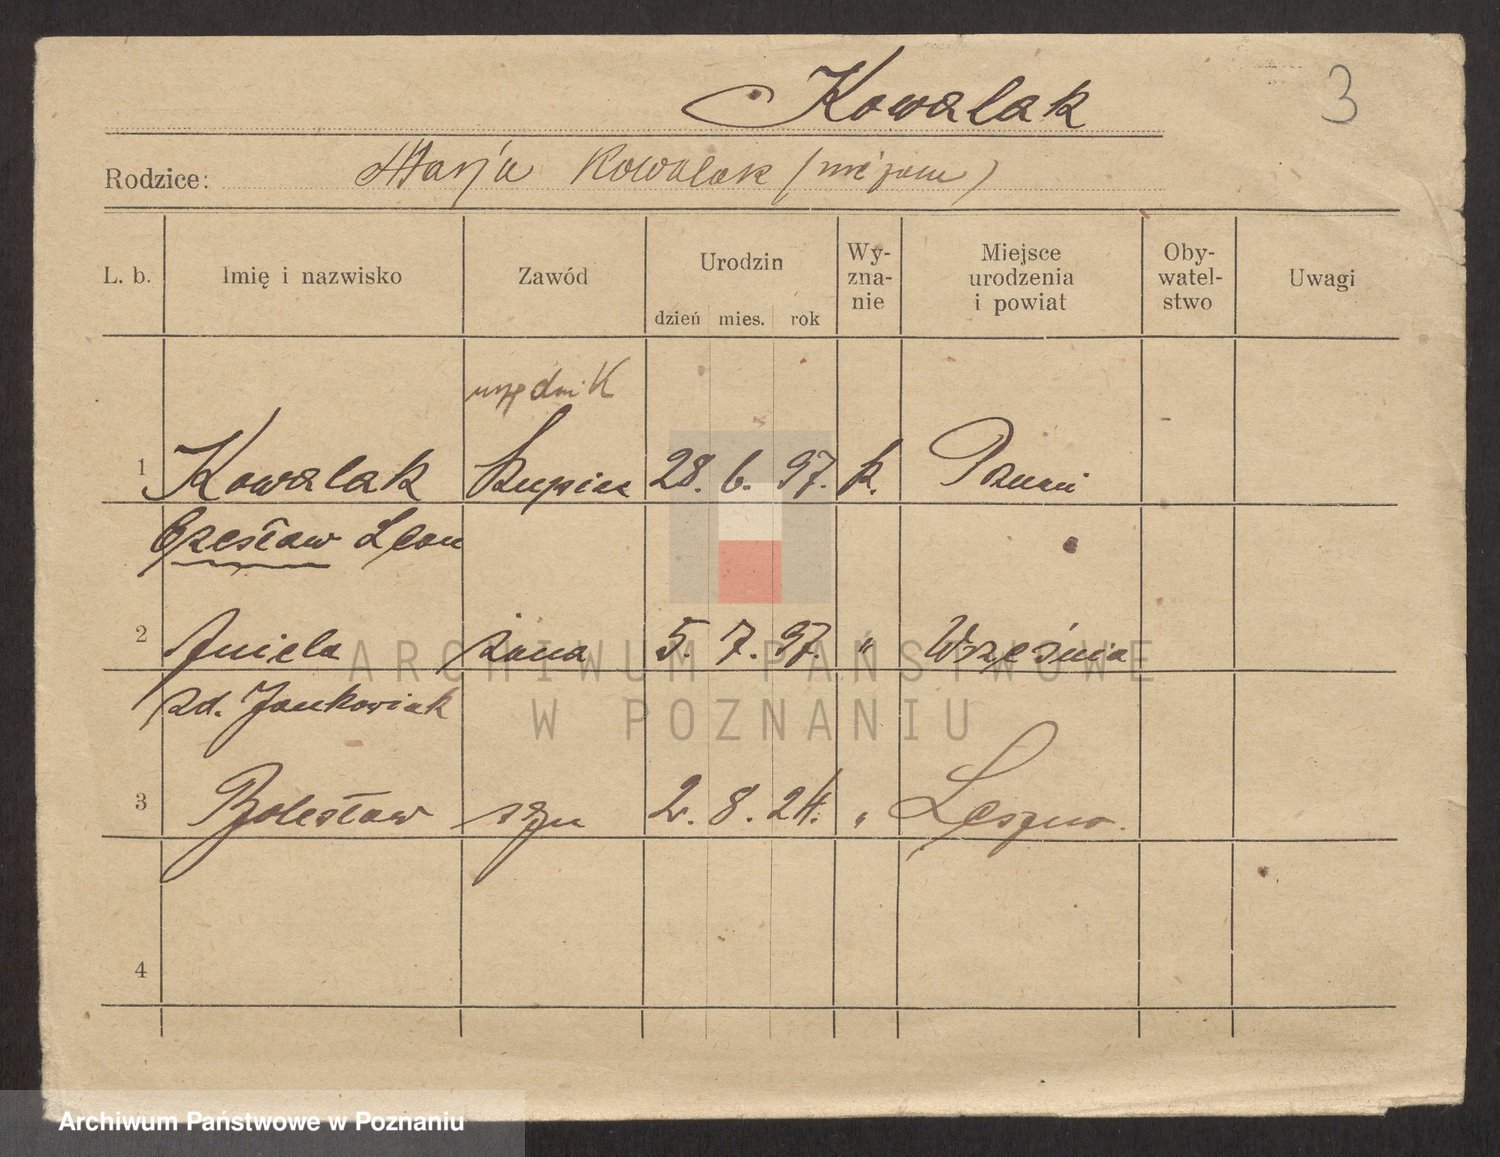 Kowalak
3
Rodzice: Marja Kowalak
L. b. Imię i nazwisko Zawód Urodzin Wy-zna-nie Miejsce urodzenia i powiat Oby-watel-stwo Uwagi
dzień mies. rok
urzędnik
1 Kowalak kupiec 28. 6. 97. k.
Czesław Leon
2 Aniela żona 5. 7. 97. " Września
zd. Jankowiak
3 Bolesław syn 2. 8. 24. " Leszno.
4
ARCHIWUM PAŃSTWOWE
W POZNANIU
Archiwum Państwowe w Poznaniu